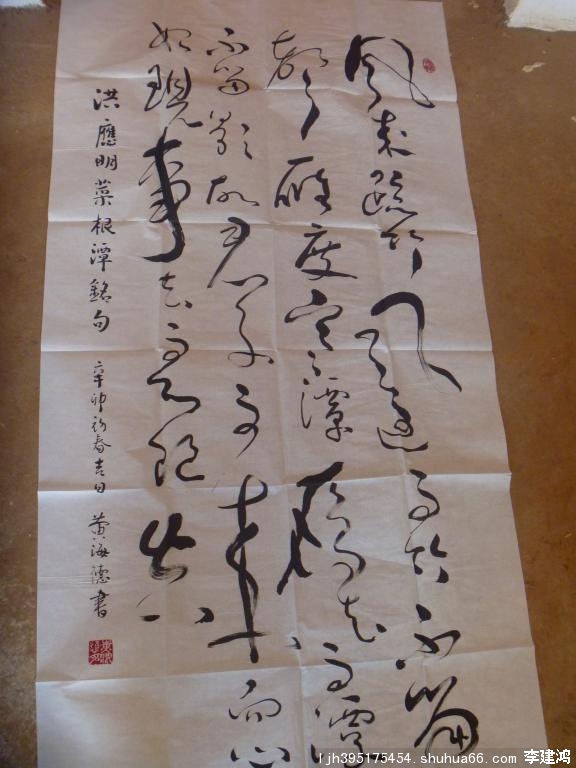 風来疏竹風過而竹不留
聲雁度寒潭雁去而潭
不留影故君子事来而心
始現事去而心随空
洪應明菜根潭銘句 辛卯初春吉日 黄海德書
ljh395175454. shuhua66. com 李建鸿